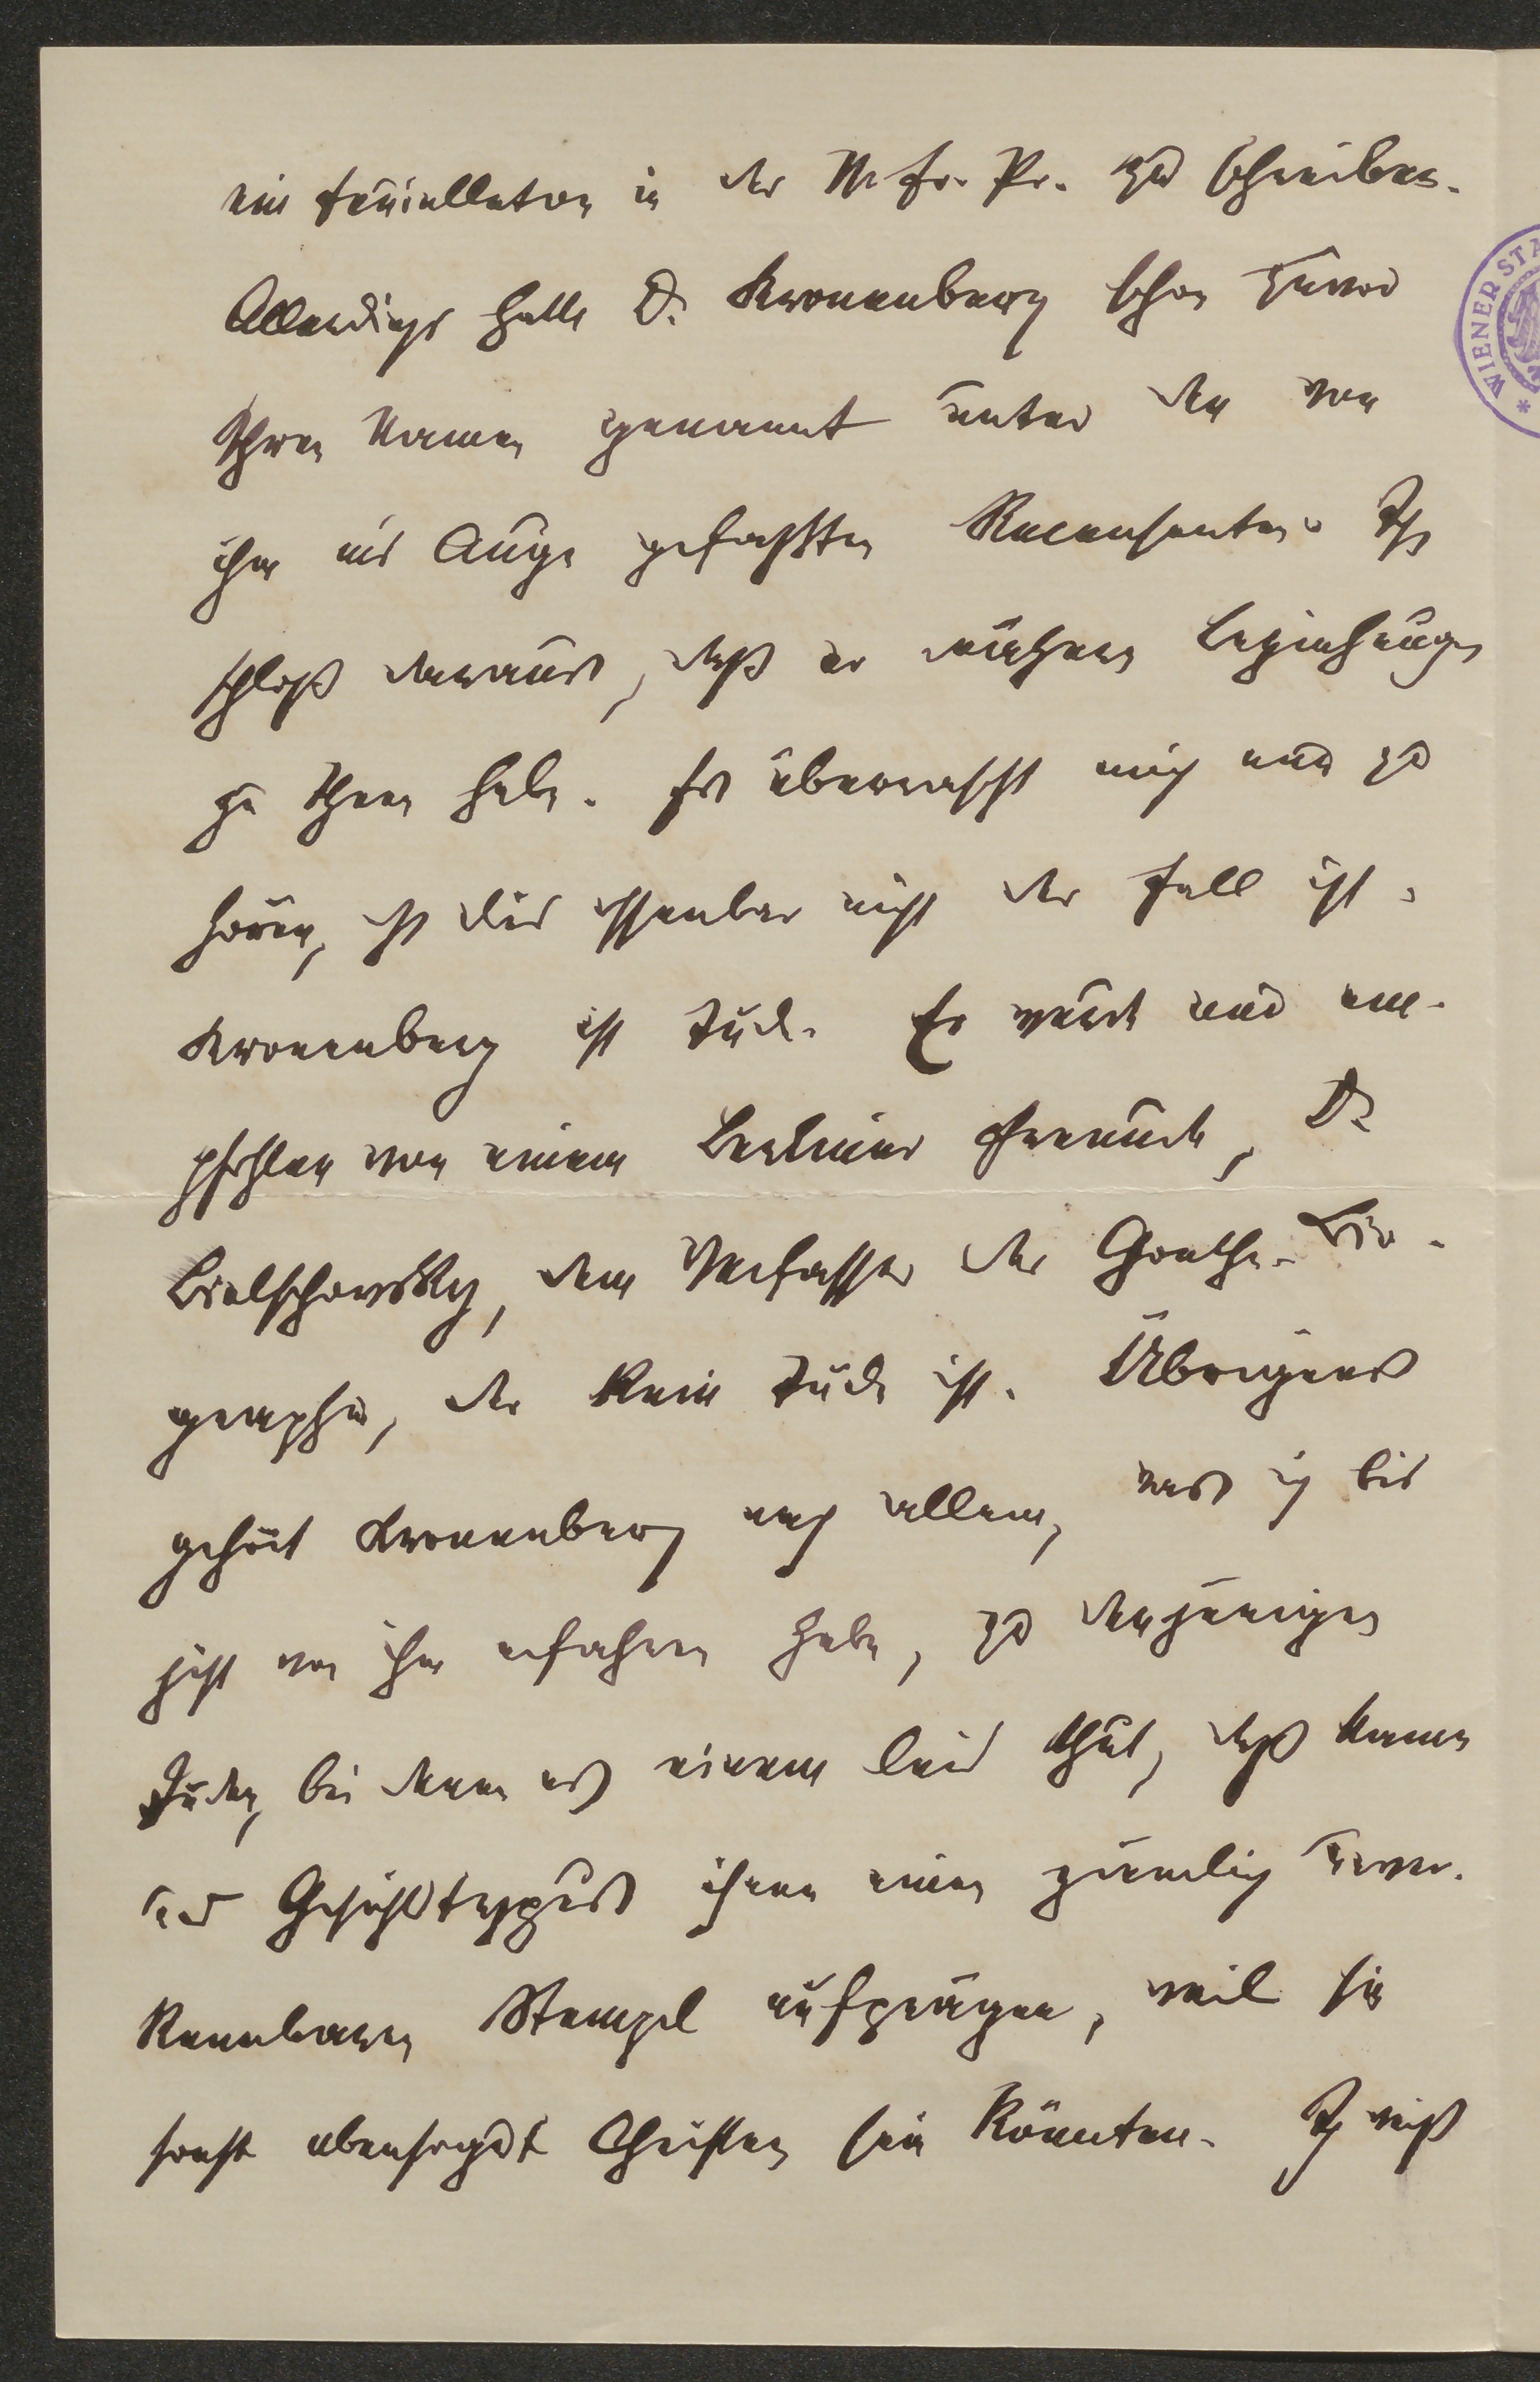 ein Feuilleton in der N. fr. Pr. zu schreiben.
Allerdings hatte Dr. Kronenberg schon zuvor
Ihren Namen genannt unter den von
ihm ins Auge gefaßten Recensenten. Ich
schloß daraus, daß er nähere Beziehungen
zu Ihnen habe. Es überrascht mich nun zu
hören, daß dies offenbar nicht der Fall ist.
Kronenberg ist Jude. Er wurde mir em-
pfohlen von einem Berliner Freunde, Dr.
Bielschowsky, dem Verfasser der Goethe-Bio-
graphie, der kein Jude ist. Übrigens
gehört Kronenberg nach allem, was ich bis
jetzt von ihm erfahren habe, zu denjenigen
Juden, bei denen es einem leid thut, daß Namen
und Gesichtstypus ihnen einen ziemlich unver-
kennbaren Stempel aufprägen, weil sie
sonst ebensogut Christen sein könnten. Ich weiß
WIENER STA